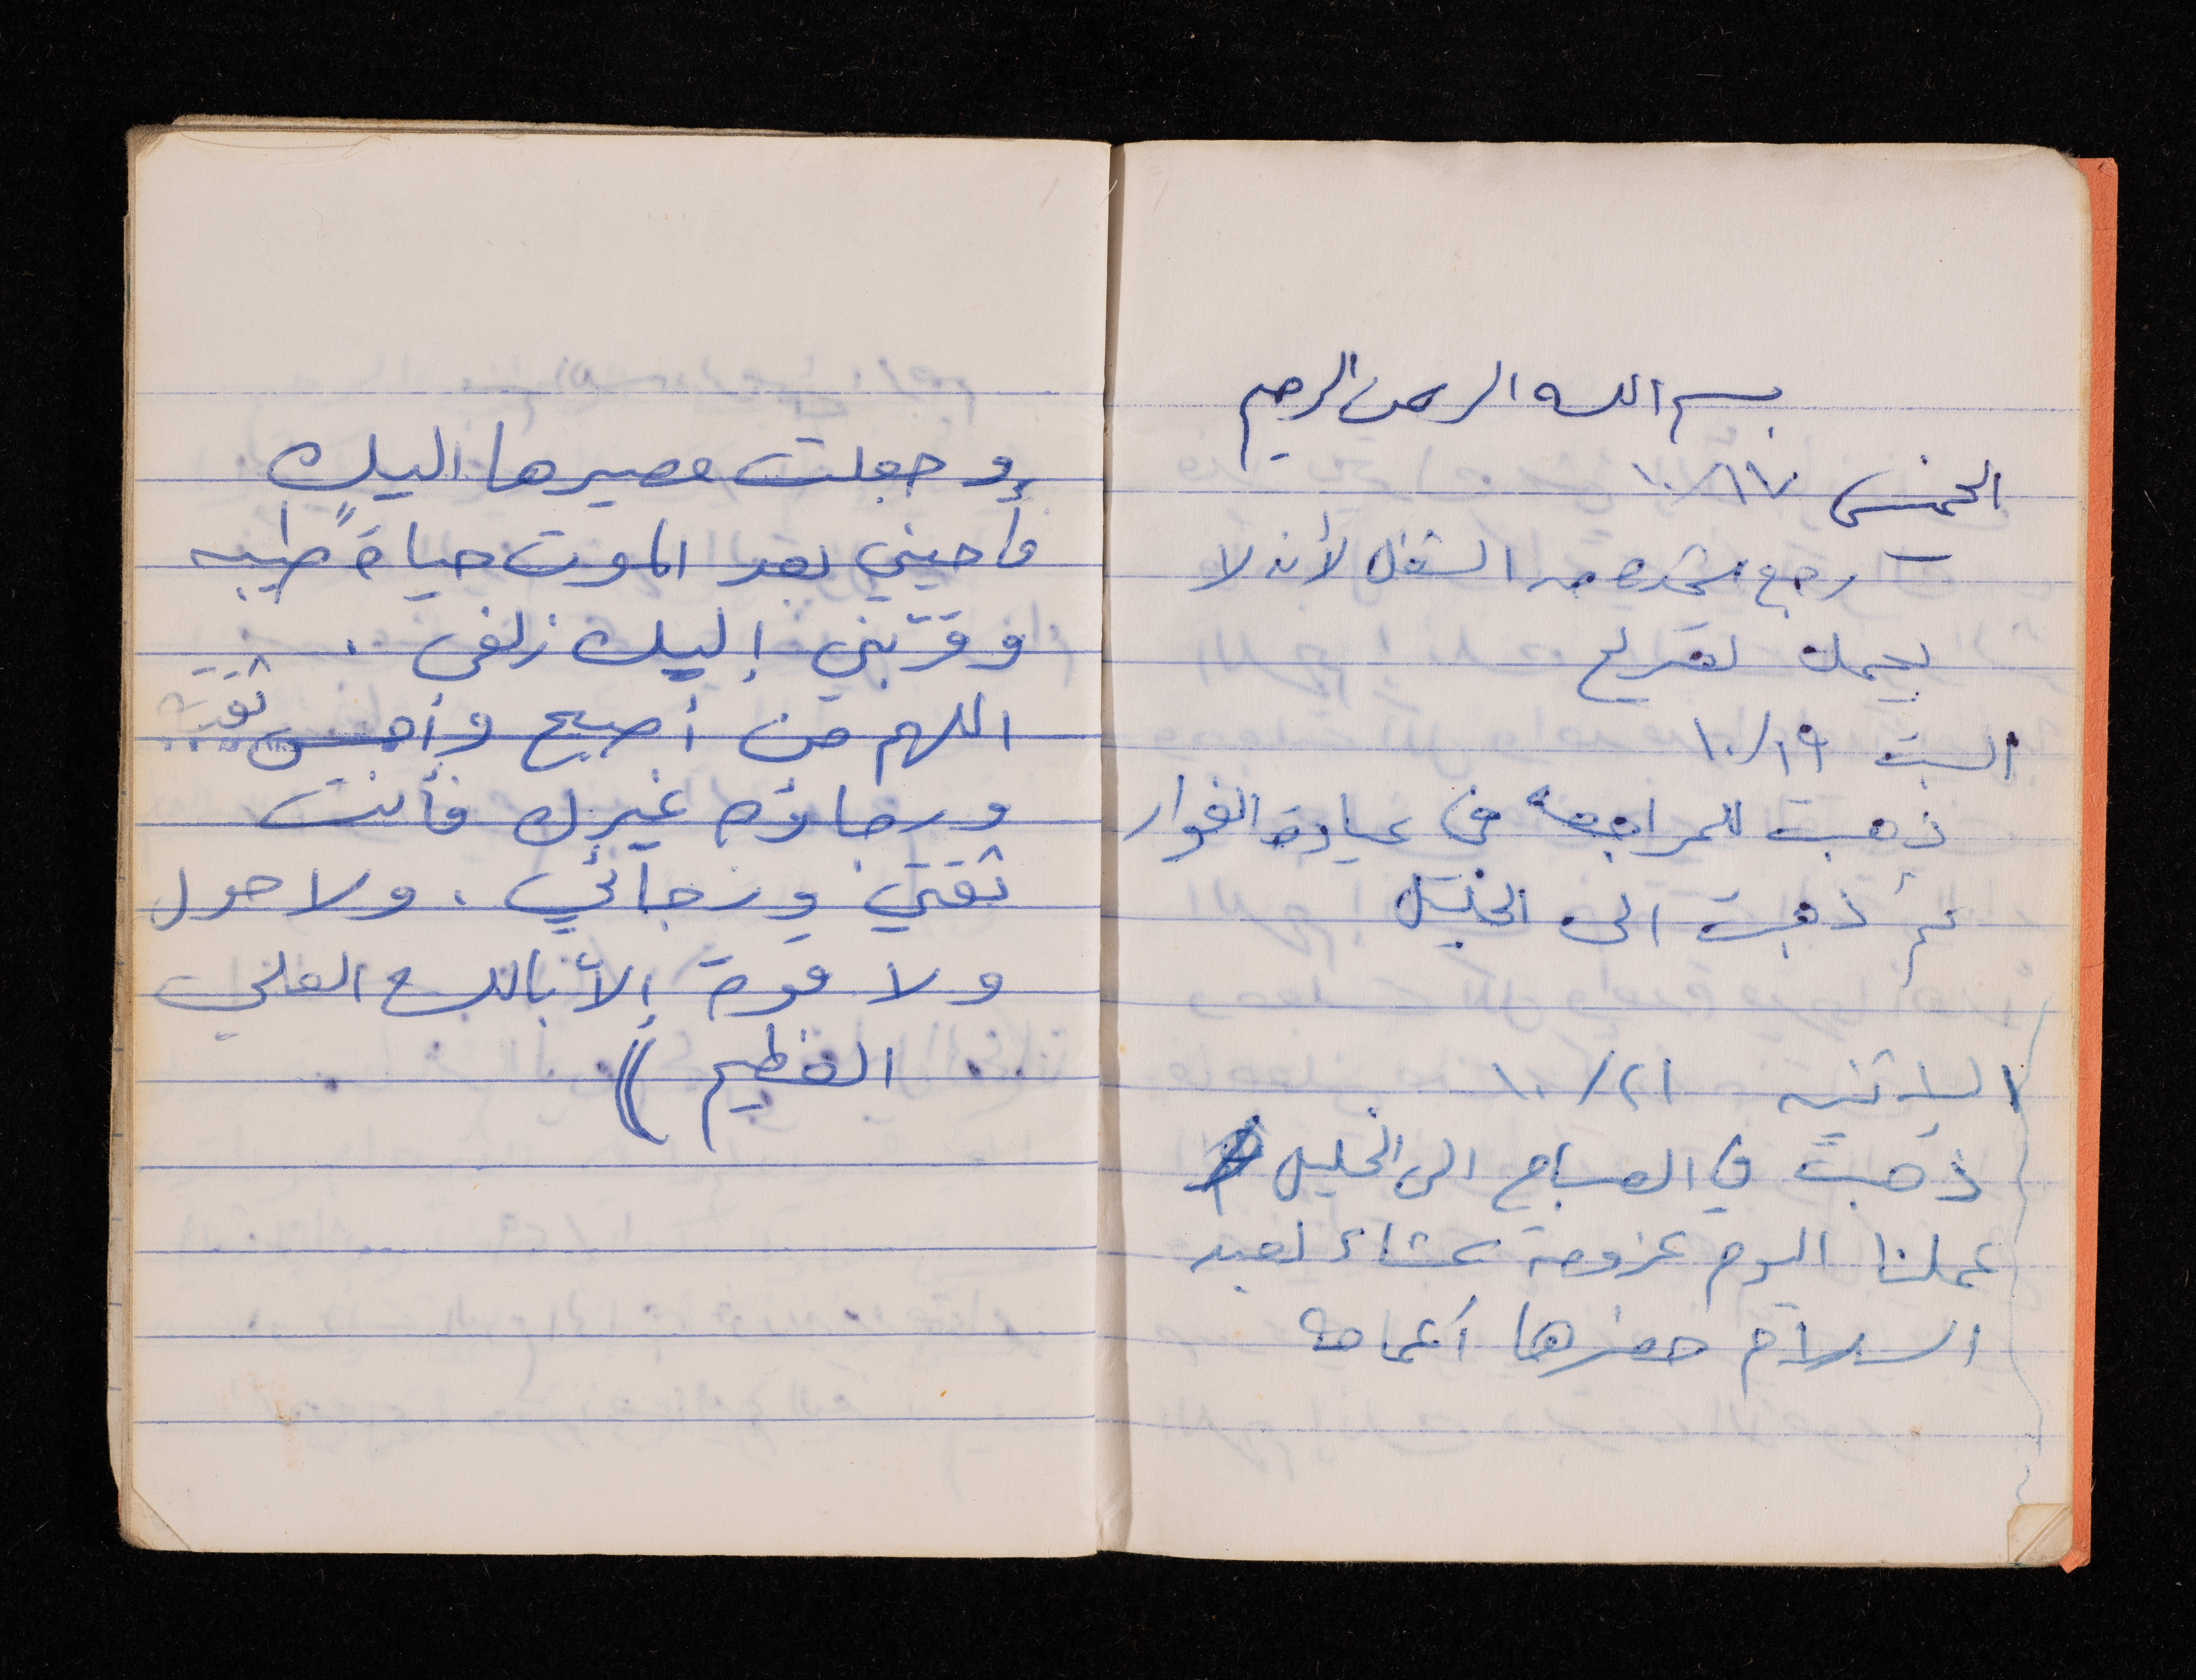 بسم الله الرحمن الرحيم
الخميس ١٠/١٧
رجع من الشغل لأنه لا
يحمل تصريح
السبت ١٠/١٩
ذهبت للمراجعة في عيادة الفوار
ثم ذهبت الى الخليل
الاثنين ١٠/٢١
ذهبت في الصباح الى الخليل
عملنا اليوم عزومة عشاء لعبد
السلام حضرها أعمامه
وجعلت مصيرها اليك
فأحيني بعد الموت حياةً طيبه
وقرّبني إليك زلفى .
اللهم من أصبح وأمسى ثقته
ورجاؤه غيرك فأنت
ثقتي ورجائي . ولا حول
ولا قوة إلاّ بالله العلي
العظيم ))